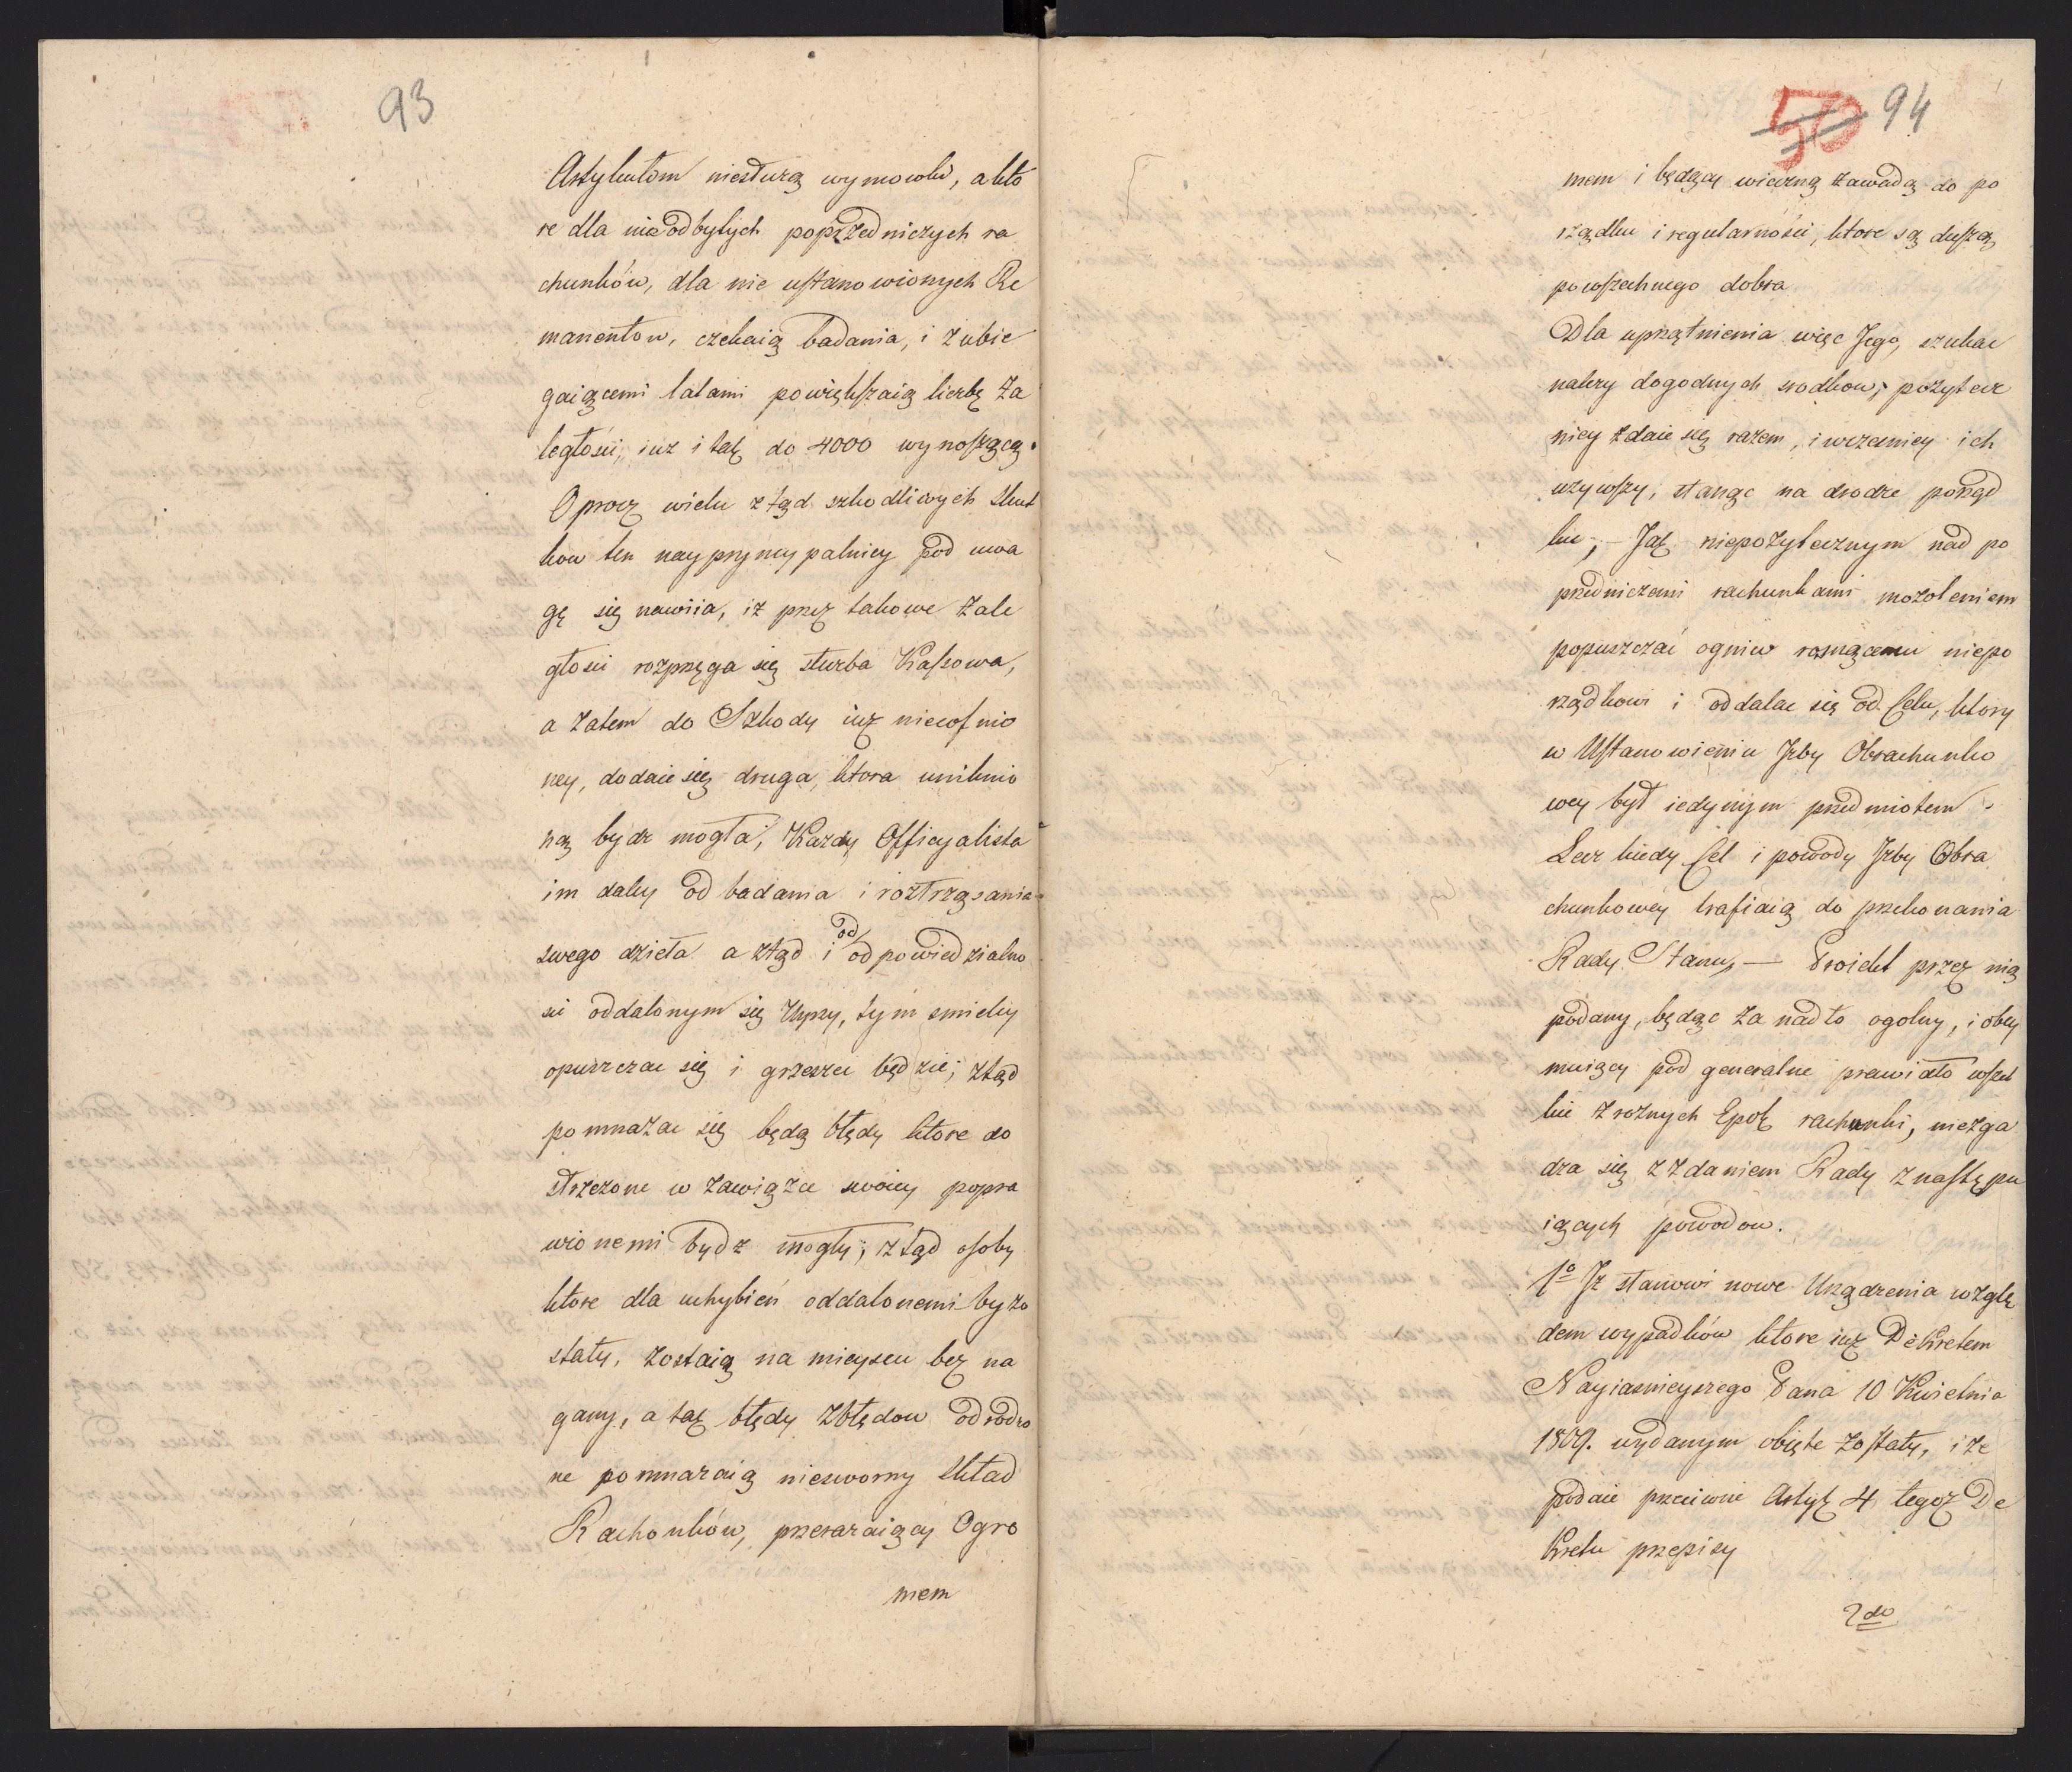 93
Artykułom niesłurzą wymowki, a kto
re dla nieodbytych poprzedniczych ra
chunków, dla nie ustanowionych Re
manentow, czekaią badania, i z ubie
gaiącemi latami powiększaią liczbę Za
ległości, iuz i tak do 4000 wynoszącą.
Oprocz wielu ztąd szkodliwych skut
kow ten nayprynцypalniey pod uwa
gę się nawiia, iz przez takowe Zale
głosci rozpręga się słurba Kassowa,
a zatem do Szkody iuz niecofnio
ney, dodaie się druga, ktora uniknio
ną bydz mogła, Kazdy Officyalista
im daley od badania i roztrząsania
swego dzieła a ztąd i od odpowiedzialno
sci oddalonym się Uyrzy, tym smieley
opuszczac się i grzeszec będzie; ztąd
pomnazac się będą błędy ktore do
strzezone w zawiązce swoiey popra
wionemi bydz mogły; ztąd osoby
ktore dla uchybień oddalonemi by zo
stały, zostaią na mieyscu bez na
gany, a tak błędy z błędow odrodzo
ne pomnazaią niesworny skład
Rachonków, przerazaiący Ogro
mem
50 94
mem i będący wieczną zawadą do po
rządku i regularności, ktore są duszą
powszechnego dobra
Dla uprzątnienia więc Jego, szukac
nalezy dogodnych srodkow; pozytecz
niey zdaie się razem, i wczesniey ich
uzywszy, stanąc na drodze porząd
ku; — Jak niepozytecznym nad po
przedniczemi rachunkami mozoleniem
popuszczać ogniw rosnącemu niepo
rządkowi i oddalac się od Celu, ktory
w Ustanowieniu Izby Obrachunko
wey był iedynym przedmiotem.
Lecz kiedy Cel i powody Izby Obra
chunkowey trafiaią do przekonania
Rady Stanu, — Proiekt przez nią
podany, będąc za nadto ogolny, i obey
muiący pod generalne prawidło wszel
kie z roznych Epok rachunki, niezga
dza się z zdaniem Rady z następu
iących powodow.
1º Iz stanowi nowe Urządzenia wzglę
dem wypadków ktore iuz Dekretem
Nayiasnieyszego Pana 10 Kwietnia
1809. wydanym obięte zostały, i ze
podaie przeciwne Artyk 4 tegoz De
kretu przepisy
2do